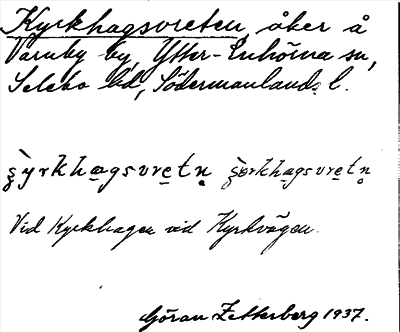 Kyrkhagsvreten, åker å
Varnby by, Ytter-Enhörna sn,
Selebo hd, Södermanlands l.
Vid Kyrkhagen vid Kyrkvägen.
Göran Zetterberg 1937.